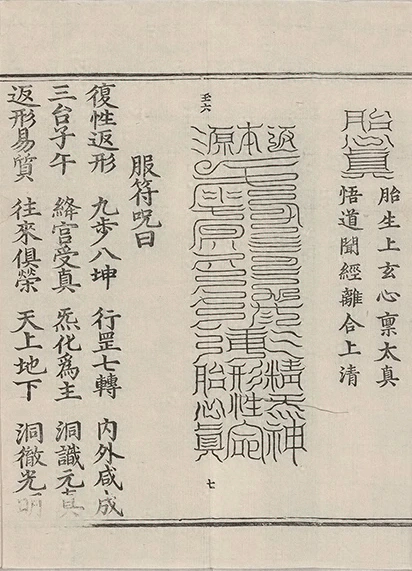 胎心真
胎生上玄心稟太真
悟道聞經離合上清
返本源
七
服符咒曰
復性返形 九步八坤 行罡七轉 內外咸成
三台子午 絳宮受真 炁化爲主 洞識元真
返形易質 往來俱榮 天上地下 洞徹光明